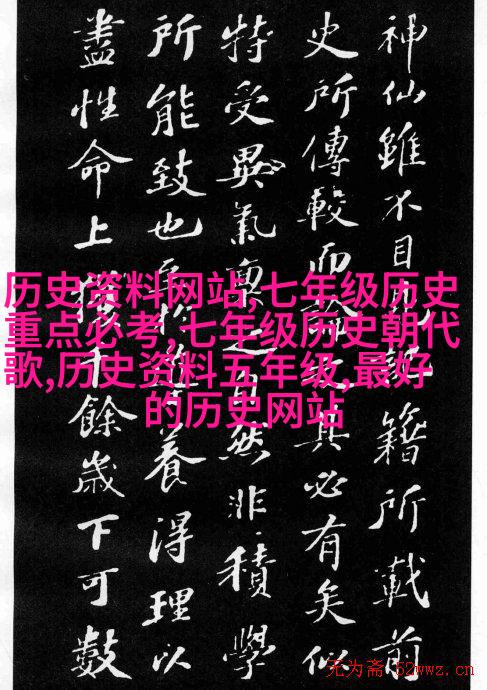 神仙雖不目見記籍所載前
史所傳較而其必有矣似
特受異氣稟之自然非積學
所能致也至於養得理以
盡性命上獲千餘歲下可數
历史资料网站,七年级历史
重点必考,七年级历史朝代
歌,历史资料五年级,最好
的历史网站
无为斋 52wwz.cn